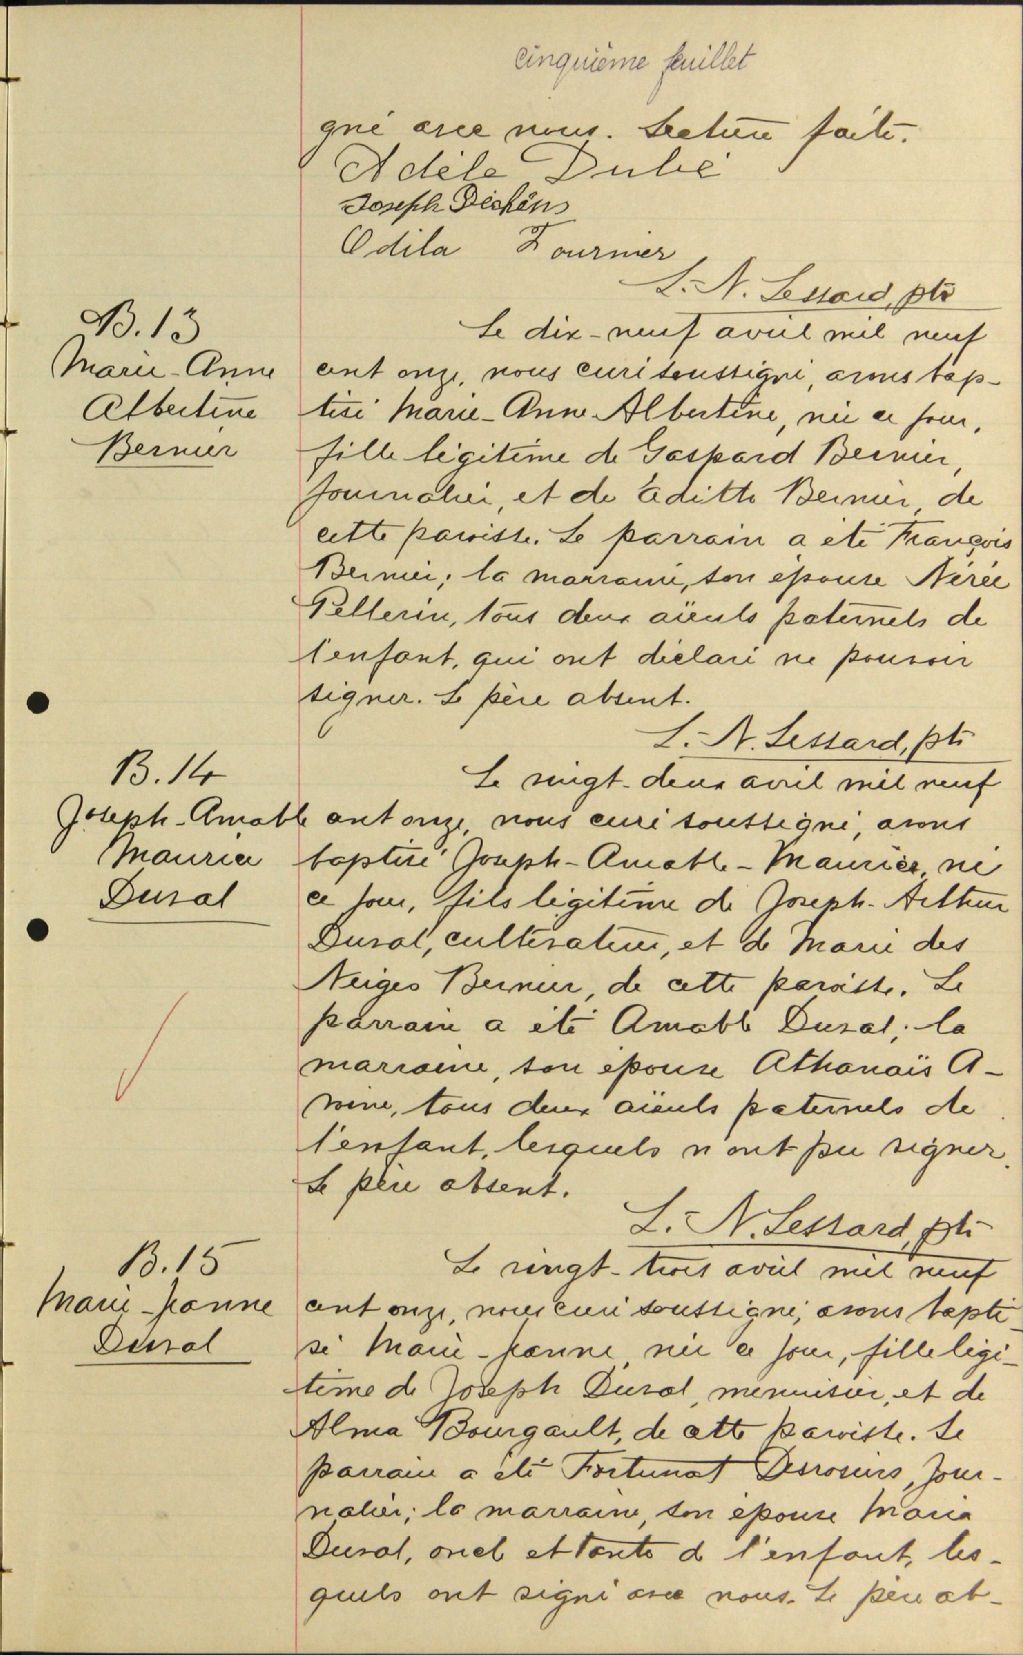 cinquième feuillet
gné avec nous. Lecture faite.
Adèle Dubé
Joseph Deschêns
Odila Fournier
L.-N. Lessard, ptr
B. 13
Marie-Anne
Albertine
Bernier
Le dix-neuf avril mil neuf
cent onze, nous curé soussigné, avons bap-
tisé Marie-Anne-Albertine, née ce jour,
fille légitime de Gaspard Bernier,
journalier, et de Editte Bernier, de
cette paroisse. Le parrain a été François
Bernier; la marraine, son épouse Nérée
Pellerin, tous deux aïeuls paternels de
l'enfant, qui ont déclaré ne pouvoir
signer. Le père absent.
L.-N. Lessard, ptr
B. 14
Joseph-Amable
Maurice
Duval
Le vingt-deux avril mil neuf
cent onze, nous curé soussigné, avons
baptisé Joseph-Amable-Maurice, né
ce jour, fils légitime de Joseph-Arthur
Duval, cultivateur, et de Marie des
Neiges Bernier, de cette paroisse. Le
parrain a été Amable Duval; la
marraine, son épouse Athanaïs A-
voine, tous deux aïeuls paternels de
l'enfant, lesquels n'ont pu signer.
Le père absent.
L.-N. Lessard, ptr
B. 15
Marie-Jeanne
Duval
Le vingt-trois avril mil neuf
cent onze, nous curé soussigné, avons bapti-
sé Marie-Jeanne, née ce jour, fille légi-
time de Joseph Duval, menuisier, et de
Alma Bourgault, de cette paroisse. Le
parrain a été Fortunat Desrosiers, jour-
nalier; la marraine, son épouse Maria
Duval, oncle et tante de l'enfant, les-
quels ont signé avec nous. Le père ab-